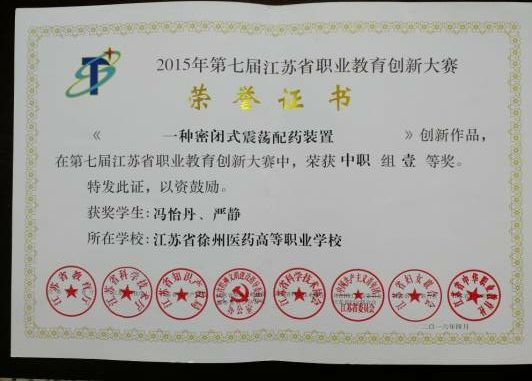 2015年第七届江苏省职业教育创新大赛
荣誉证书
《 一种密闭式震荡配药装置 》创新作品，
在第七届江苏省职业教育创新大赛中，荣获 中职 组 壹 等奖。
特发此证，以资鼓励。
获奖学生：冯怡丹、严静
所在学校：江苏省徐州医药高等职业学校
江苏省教育厅
江苏省科学技术厅
江苏省知识产权局
江苏省科学技术协会
江苏省委员会
江苏省妇女联合会
江苏省中华职业教育社
二〇一六年四月